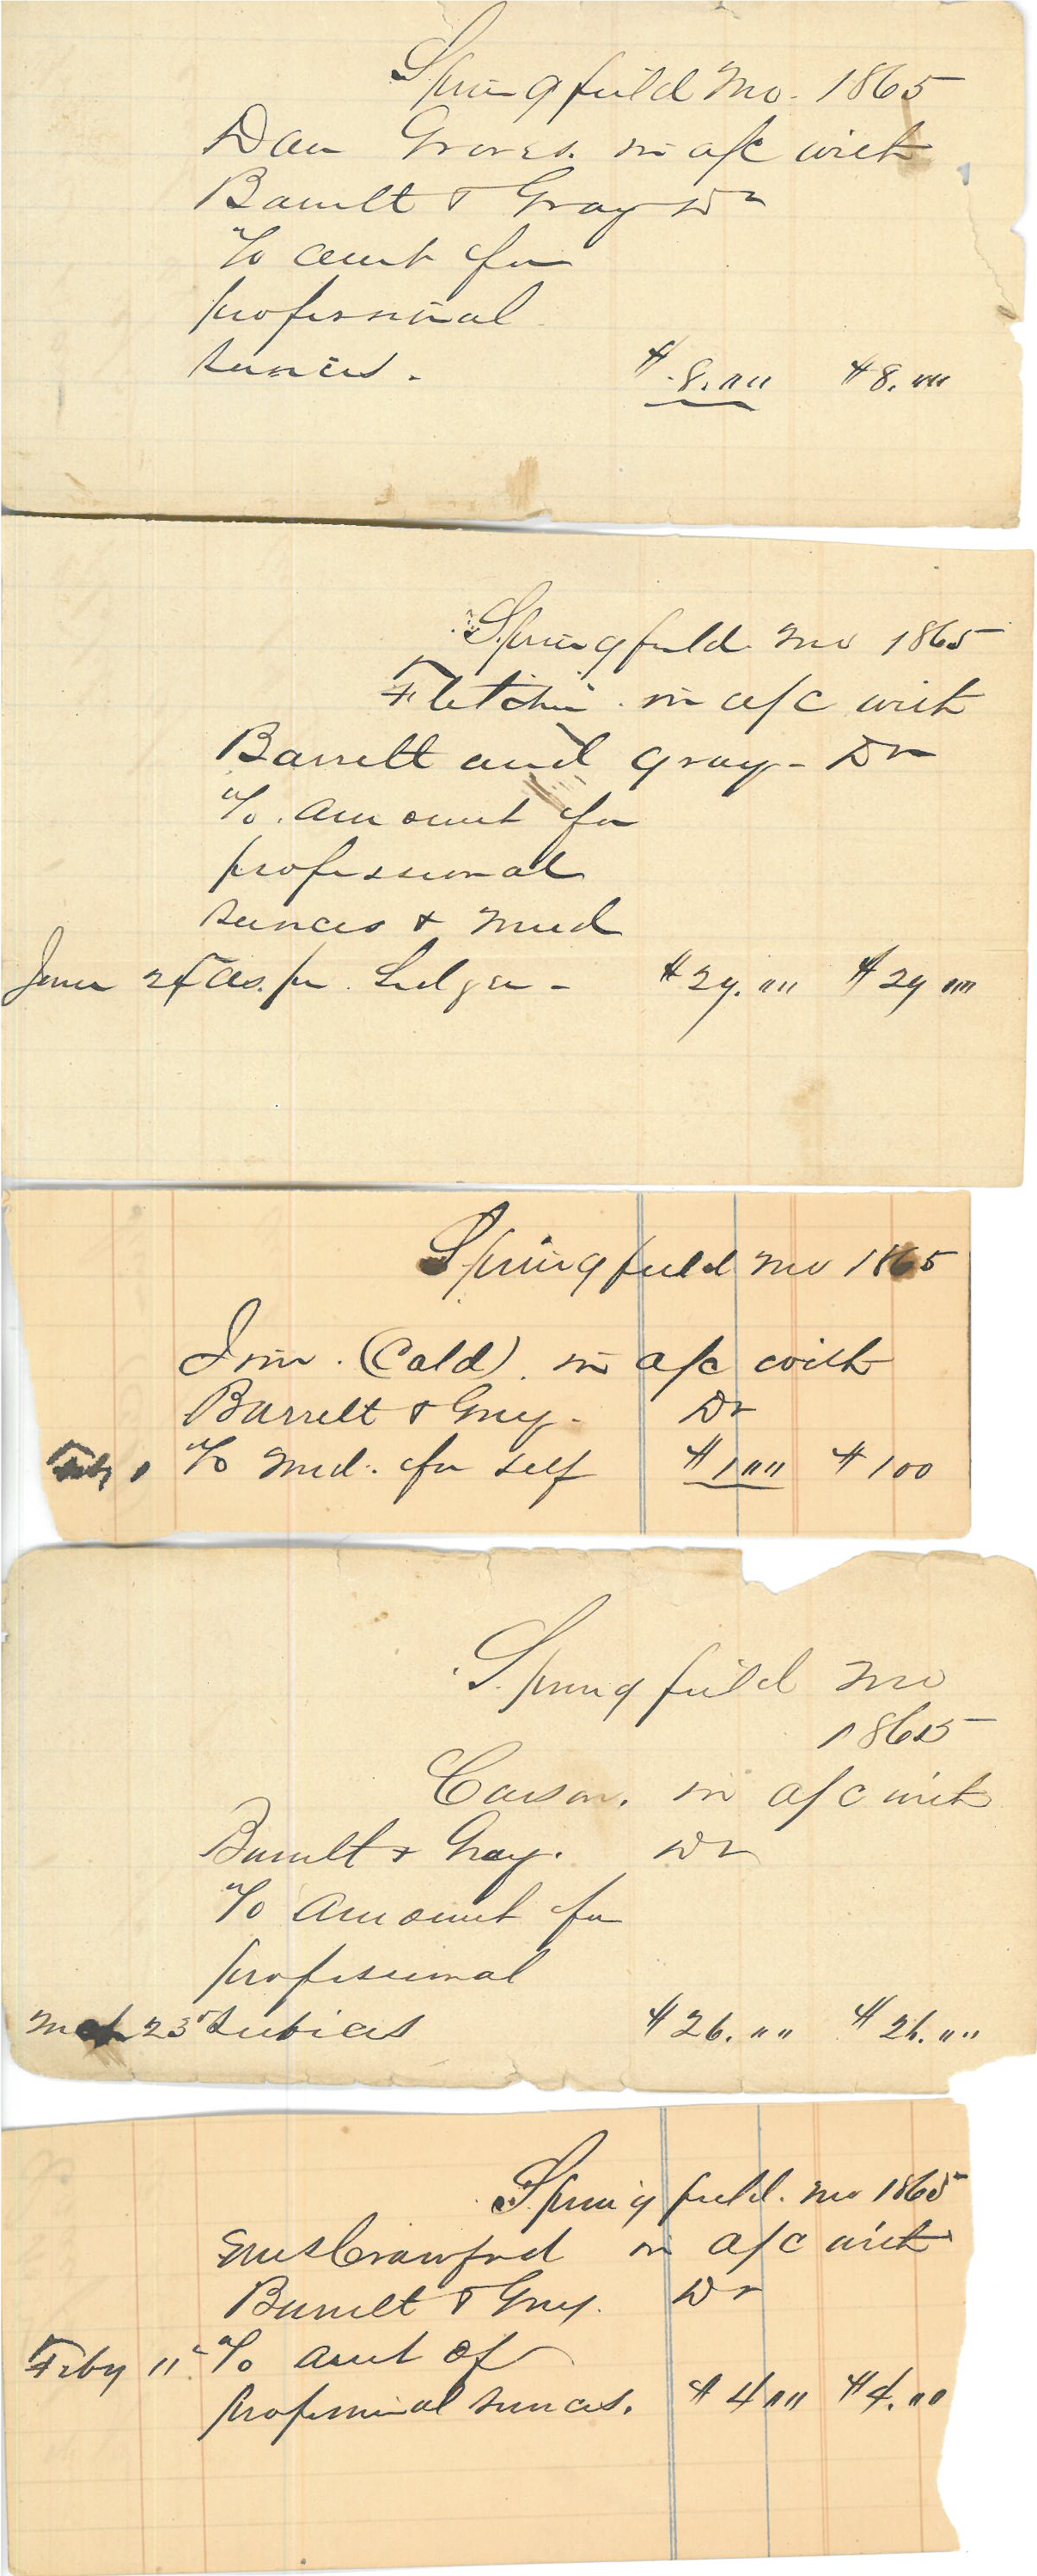 Springfield Mo. 1865
Dan Groves. in a/c with
Barrett & Gray Dr
To amt for
professional
services.
$8.00 $8.00
Springfield Mo 1865
Fletcher in a/c with
Barrett and Gray - Dr
To amount for
professional
services & Med
24 as. per Ledger - $29.00 $29.00
Springfield Mo 1865
Jim. (Cold). in a/c with
Barrett & Gray - Dr
Feby 1 To Med. for self $1.00 $100
Springfield Mo
1865
Carson. in a/c with
Barrett & Gray. Dr
To Amount for
professional
Mch 23 services $26.00 $26.00
Springfield. Mo 1865
Crawford in a/c with
Barrett & Gray. Dr
Feby 11 To amt of
professional services. $4.00 $4.00